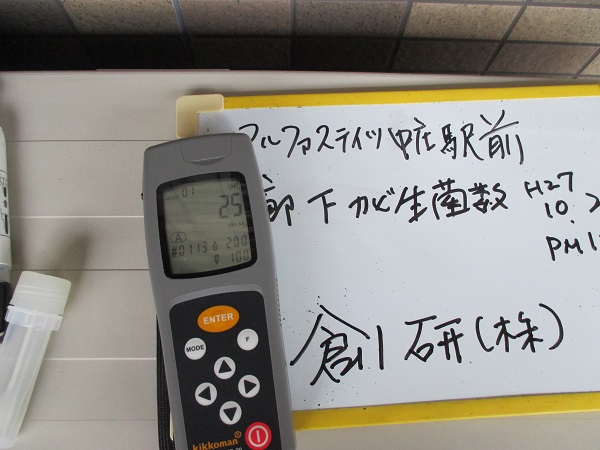 アルファステイツ中庄駅前
廊下カビ生菌数
H27
10.2
PM1
創研(株)
01
25
A
#0113 200
100
ENTER
MODE
F
kikkoman